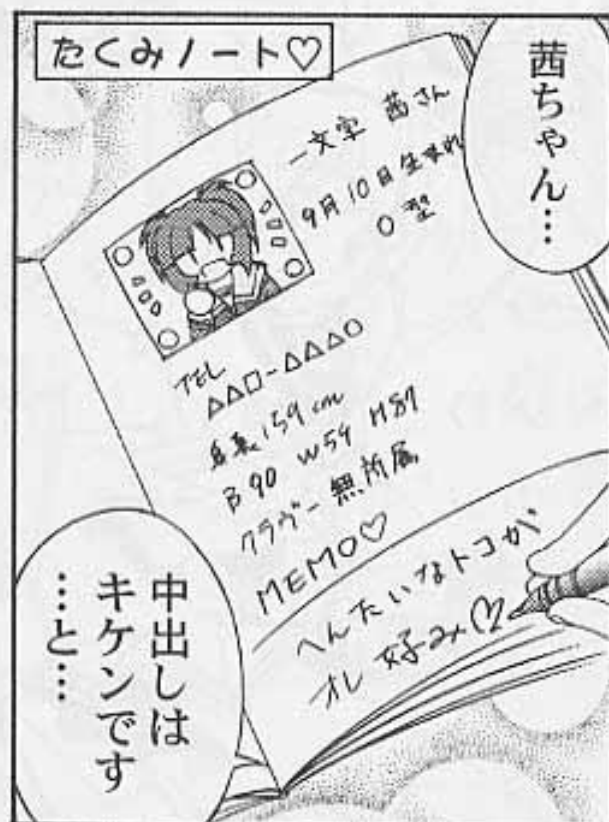 たくみノート♡
茜ちゃん…
一文字 茜さん
9月10日生まれ
O型
TEL
△△□-△△△○
身長159cm
B 90 W54 H87
クラブー無所属
MEMO♡
へんたいなトコが
オレ好み♡
中出しは
キケンです
…と…